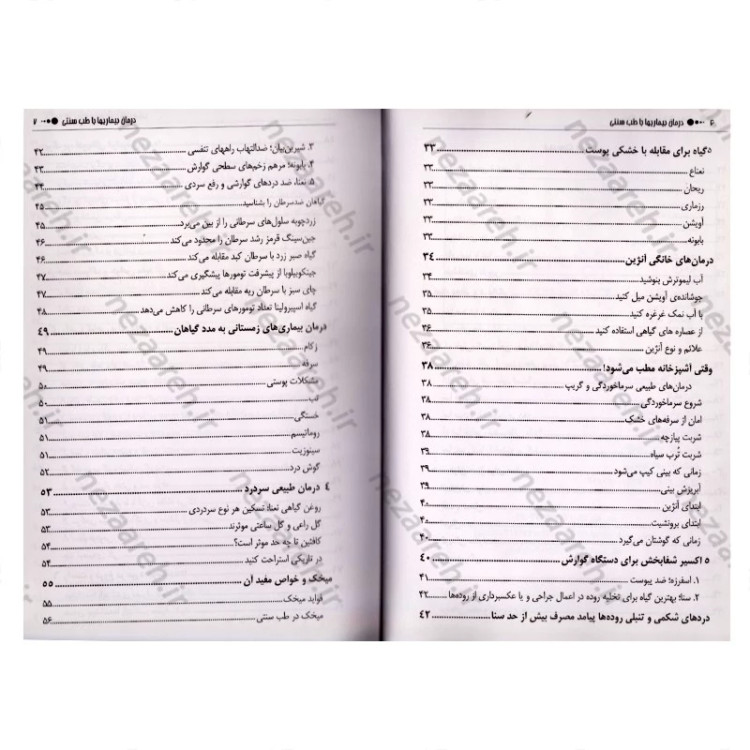 ۶ ●●●── درمان بیماریها با طب سنتی
۵گیاه برای مقابله با خشکی پوست ........ ۳۲
نعناع ........ ۳۲
ریحان ........ ۳۲
رزماری ........ ۳۲
آویشن ........ ۳۲
بابونه ........ ۳۲
درمان‌های خانگی آنژین ........ ۳۴
آب لیموترش بنوشید ........ ۳۴
جوشانده‌ی آویشن میل کنید ........ ۳۵
با آب نمک غرغره کنید ........ ۳۵
از عصاره های گیاهی استفاده کنید ........ ۳۶
علائم و نوع آنژین ........ ۳۶
وقتی آشپزخانه مطب می‌شود! ........ ۳۸
درمان‌های طبیعی سرماخوردگی و گریپ ........ ۳۸
شروع سرماخوردگی ........ ۳۸
امان از سرفه‌های خشک ........ ۳۸
شربت پیازچه ........ ۳۸
شربت تُرب سیاه ........ ۳۹
زمانی که بینی کیپ می‌شود ........ ۳۹
آبریزش بینی ........ ۳۹
ابتدای آنژین ........ ۴۰
ابتدای برونشیت ........ ۴۰
زمانی که گوشتان می‌گیرد ........ ۴۰
۵ اکسیر شفابخش برای دستگاه گوارش ........ ۴۰
۱. اسفرزه؛ ضد یبوست ........ ۴۱
۲. سنا؛ بهترین گیاه برای تخلیه روده در اعمال جراحی و یا عکسبرداری از روده‌ها ........ ۴۲
دردهای شکمی و تنبلی روده‌ها پیامد مصرف بیش از حد سنا ........ ۴۲
درمان بیماریها با طب سنتی ──●●● ۷
۳. شیرین‌بیان؛ ضدالتهاب راههای تنفسی ........ ۴۲
۴. بابونه؛ مرهم زخم‌های سطحی گوارش ........ ۴۳
۵. نعنا، ضد دردهای گوارشی و رفع سردی ........ ۴۴
گیاهان ضدسرطان را بشناسید ........ ۴۵
زردچوبه سلول‌های سرطانی را از بین می‌برد ........ ۴۵
جین‌سینگ قرمز رشد سرطان را محدود می‌کند ........ ۴۶
گیاه صبر زرد با سرطان کبد مقابله می‌کند ........ ۴۶
جینکوبیلوبا از پیشرفت تومورها پیشگیری می‌کند ........ ۴۷
چای سبز با سرطان ریه مقابله می‌کند ........ ۴۷
گیاه اسپیرولینا تعداد تومورهای سرطانی را کاهش می‌دهد ........ ۴۸
درمان بیماری‌های زمستانی به مدد گیاهان ........ ۴۹
زکام ........ ۴۹
سرفه ........ ۴۹
مشکلات پوستی ........ ۵۰
تب ........ ۵۰
خستگی ........ ۵۱
روماتیسم ........ ۵۱
سینوزیت ........ ۵۱
گوش درد ........ ۵۲
۴ درمان طبیعی سردرد ........ ۵۳
روغن گیاهی نعنا؛ تسکین هر نوع سردردی ........ ۵۳
گل راعی و گل ساعتی موثرند ........ ۵۳
کافئین تا چه حد موثر است؟ ........ ۵۴
در تاریکی استراحت کنید ........ ۵۴
میخک و خواص مفید آن ........ ۵۵
فواید میخک ........ ۵۵
میخک در طب سنتی ........ ۵۶
nezaareh.ir